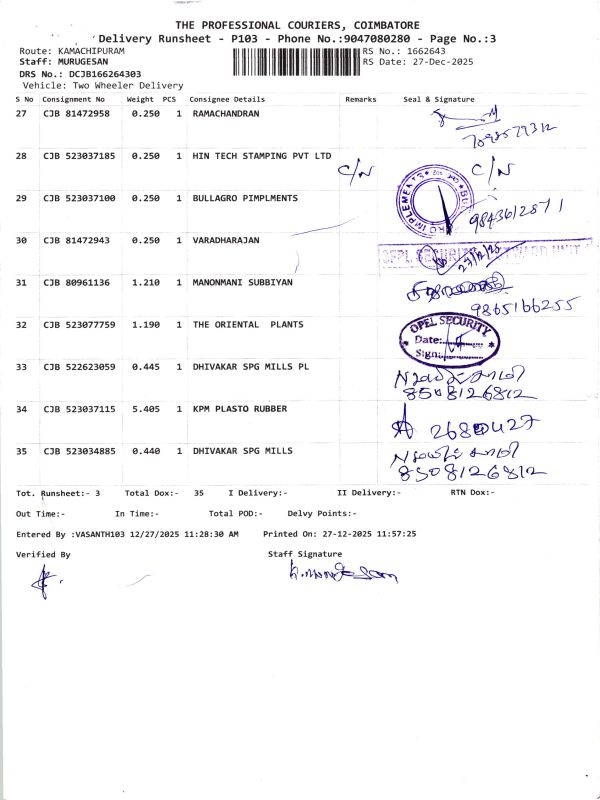 THE PROFESSIONAL COURIERS, COIMBATORE
Delivery Runsheet - P103 - Phone No.:9047080280 - Page No.:3
Route: KAMACHIPURAM RS No.: 1662643
Staff: MURUGESAN RS Date: 27-Dec-2025
DRS No.: DCJB166264303
Vehicle: Two Wheeler Delivery
S No Consignment No Weight PCS Consignee Details Remarks Seal & Signature
27 CJB 81472958 0.250 1 RAMACHANDRAN
7098579312
28 CJB 523037185 0.250 1 HIN TECH STAMPING PVT LTD C/N C/N
29 CJB 523037100 0.250 1 BULLAGRO PIMPLMENTS
9843612871
30 CJB 81472943 0.250 1 VARADHARAJAN
OFPL SECURITY
27/12/25
31 CJB 80961136 1.210 1 MANONMANI SUBBIYAN
9865166255
32 CJB 523077759 1.190 1 THE ORIENTAL PLANTS
OPEL SECURITY
Date:
Sign:
33 CJB 522623059 0.445 1 DHIVAKAR SPG MILLS PL
8508126812
34 CJB 523037115 5.405 1 KPM PLASTO RUBBER
2680427
35 CJB 523034885 0.440 1 DHIVAKAR SPG MILLS
8508126812
Tot. Runsheet:- 3 Total Dox:- 35 I Delivery:- II Delivery:- RTN Dox:-
Out Time:- In Time:- Total POD:- Delvy Points:-
Entered By :VASANTH103 12/27/2025 11:28:30 AM Printed On: 27-12-2025 11:57:25
Verified By Staff Signature
K.Murugesan